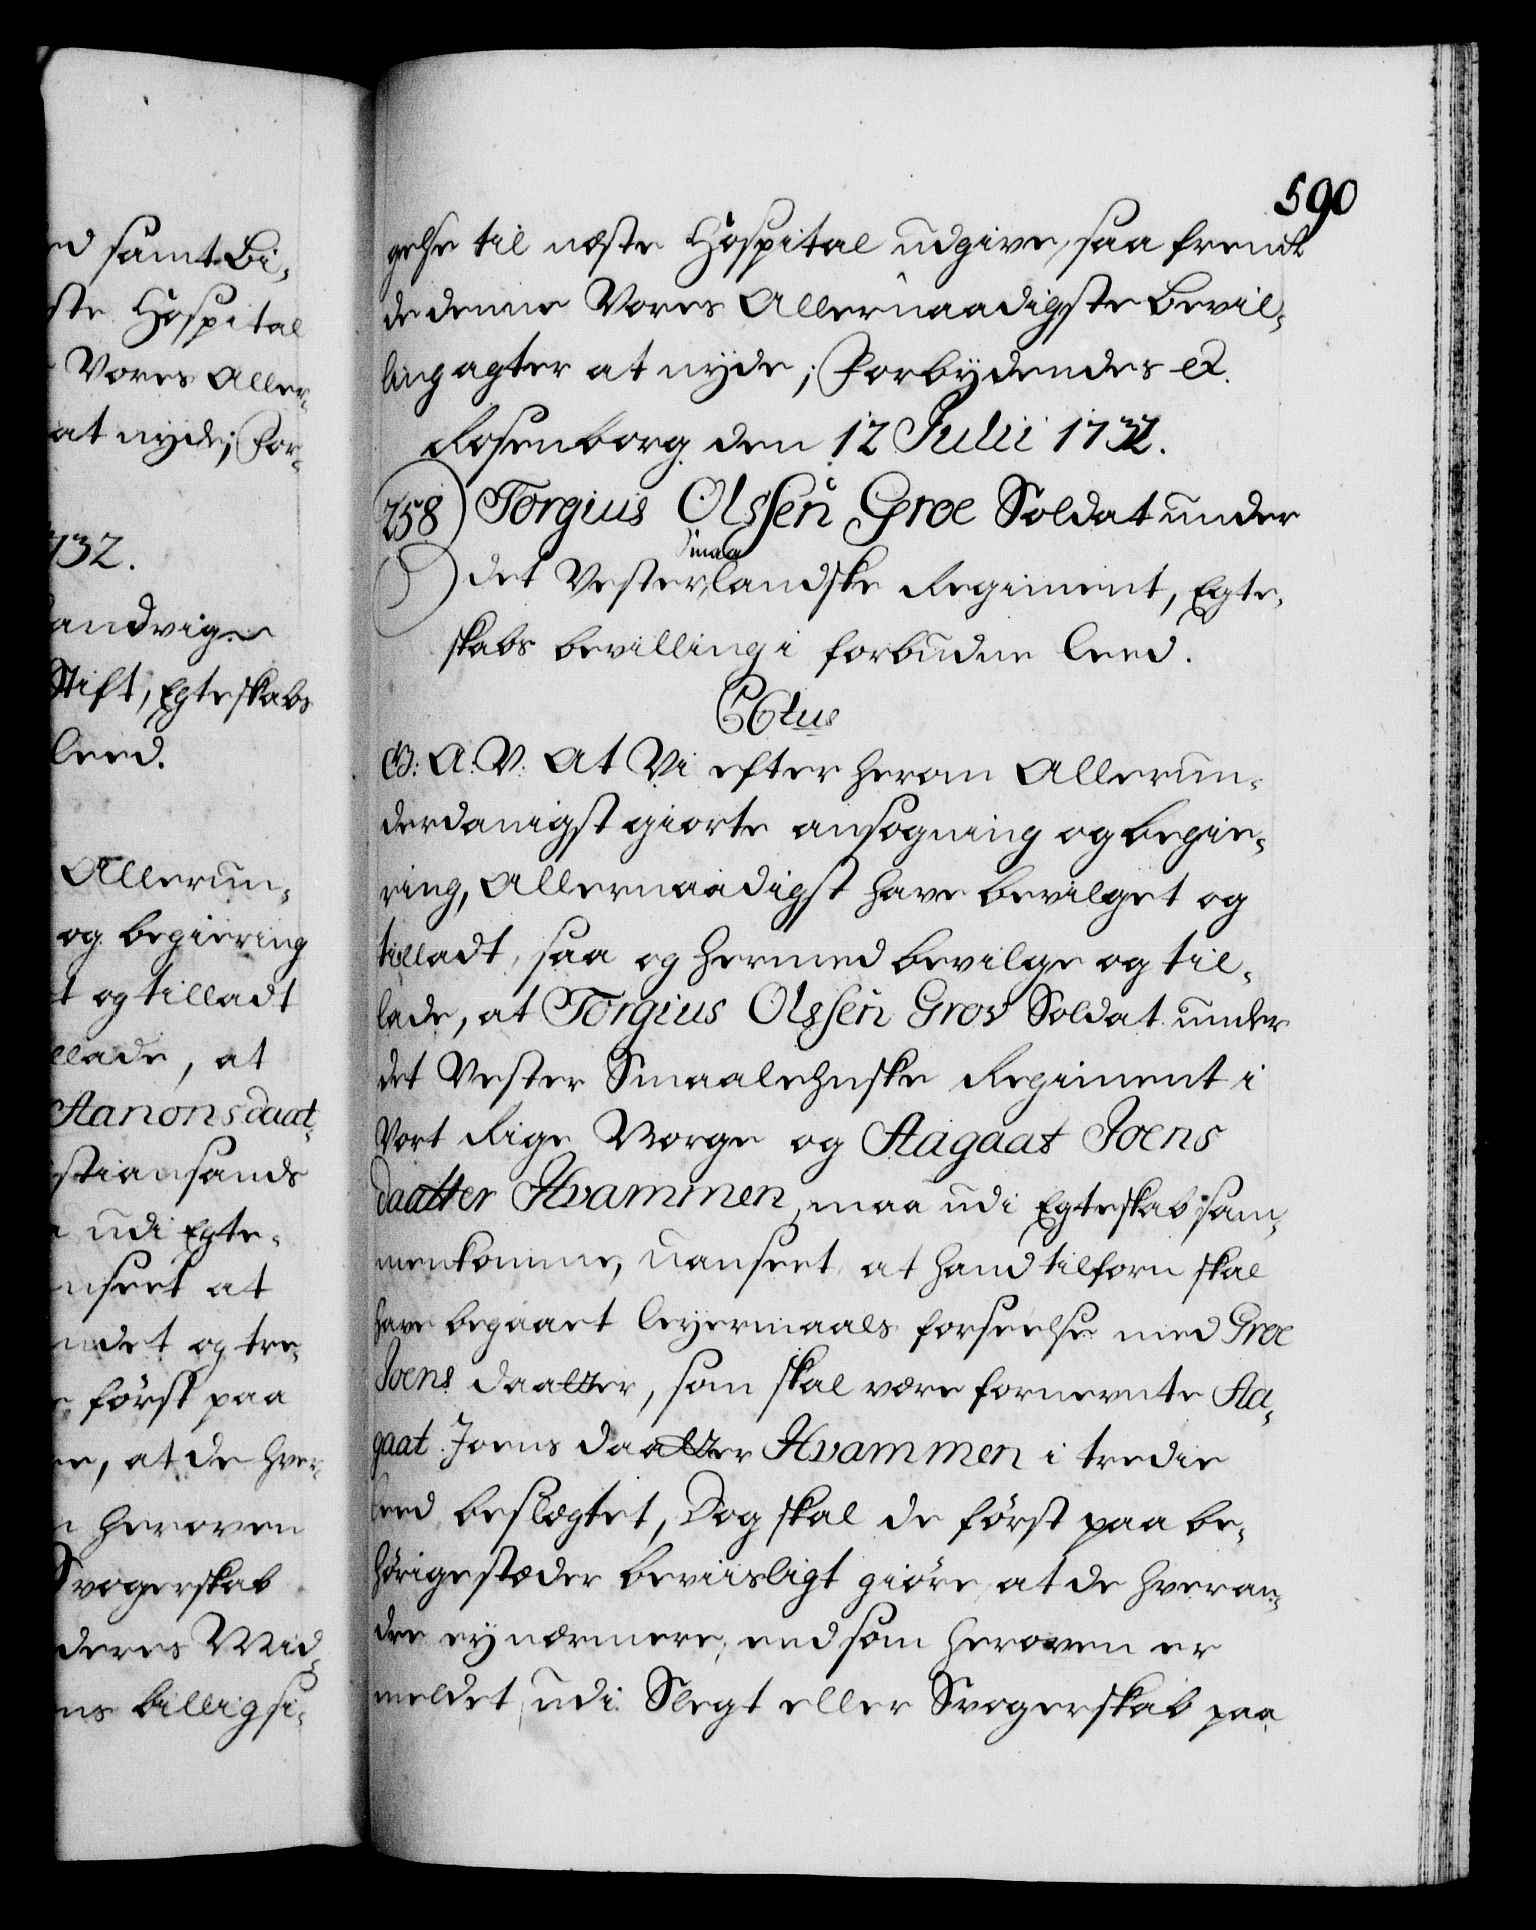 590
ed samt Bi-
ste Hospital
Vores Aller-
at nyde; For-
732.
andvigen
Stift, Egteskabs
leed.
Allerun-
og begiering
t og tilladt
llade, at
Aanonsdaat-
stiansands
udi Egte-
nseet at
ndet og tre-
først paa
re, at de hver-
heroven
Svogerskab
deres Mid-
ns billigsi-
gelse til næste Hospital udgive, saa fremt
de denne Vores Allernaadigste bevil-
ling agter at nyde; Forbydendes &.
Rosenborg den 12 Julii 1732.
258) Torgius Olssen Groe Soldat under
det Vester Smaalandske Regiment, Egte-
skabs bevilling i forbudne leed.
C6tus
G: A: V: At Vi efter herom Allerun-
derdanigst giorte ansøgning og begie-
ring, Allernaadigst have bevilget og
tilladt, saa og hermed bevilge og til-
lade, at Torgius Olssen Grov Soldat under
det Vester Smaalehnske Regiment i
Vort Rige Norge og Aagaat Joens
daatter Hvammen, maa udi Egteskab sam-
menkomme, uanseet at hand tilforn skal
have begaaet leyermaals forseelse med Groe
Joens daatter, som skal være fornevnte Aa-
gaat Joens daatter Hvammen i tredie
leed beslægtet, Dog skal de først paa be-
hørige stæder beviisligt giøre, at de hveran-
dre ey nærmere, end som heroven er
meldet, udi Slegt eller Svogerskab paa